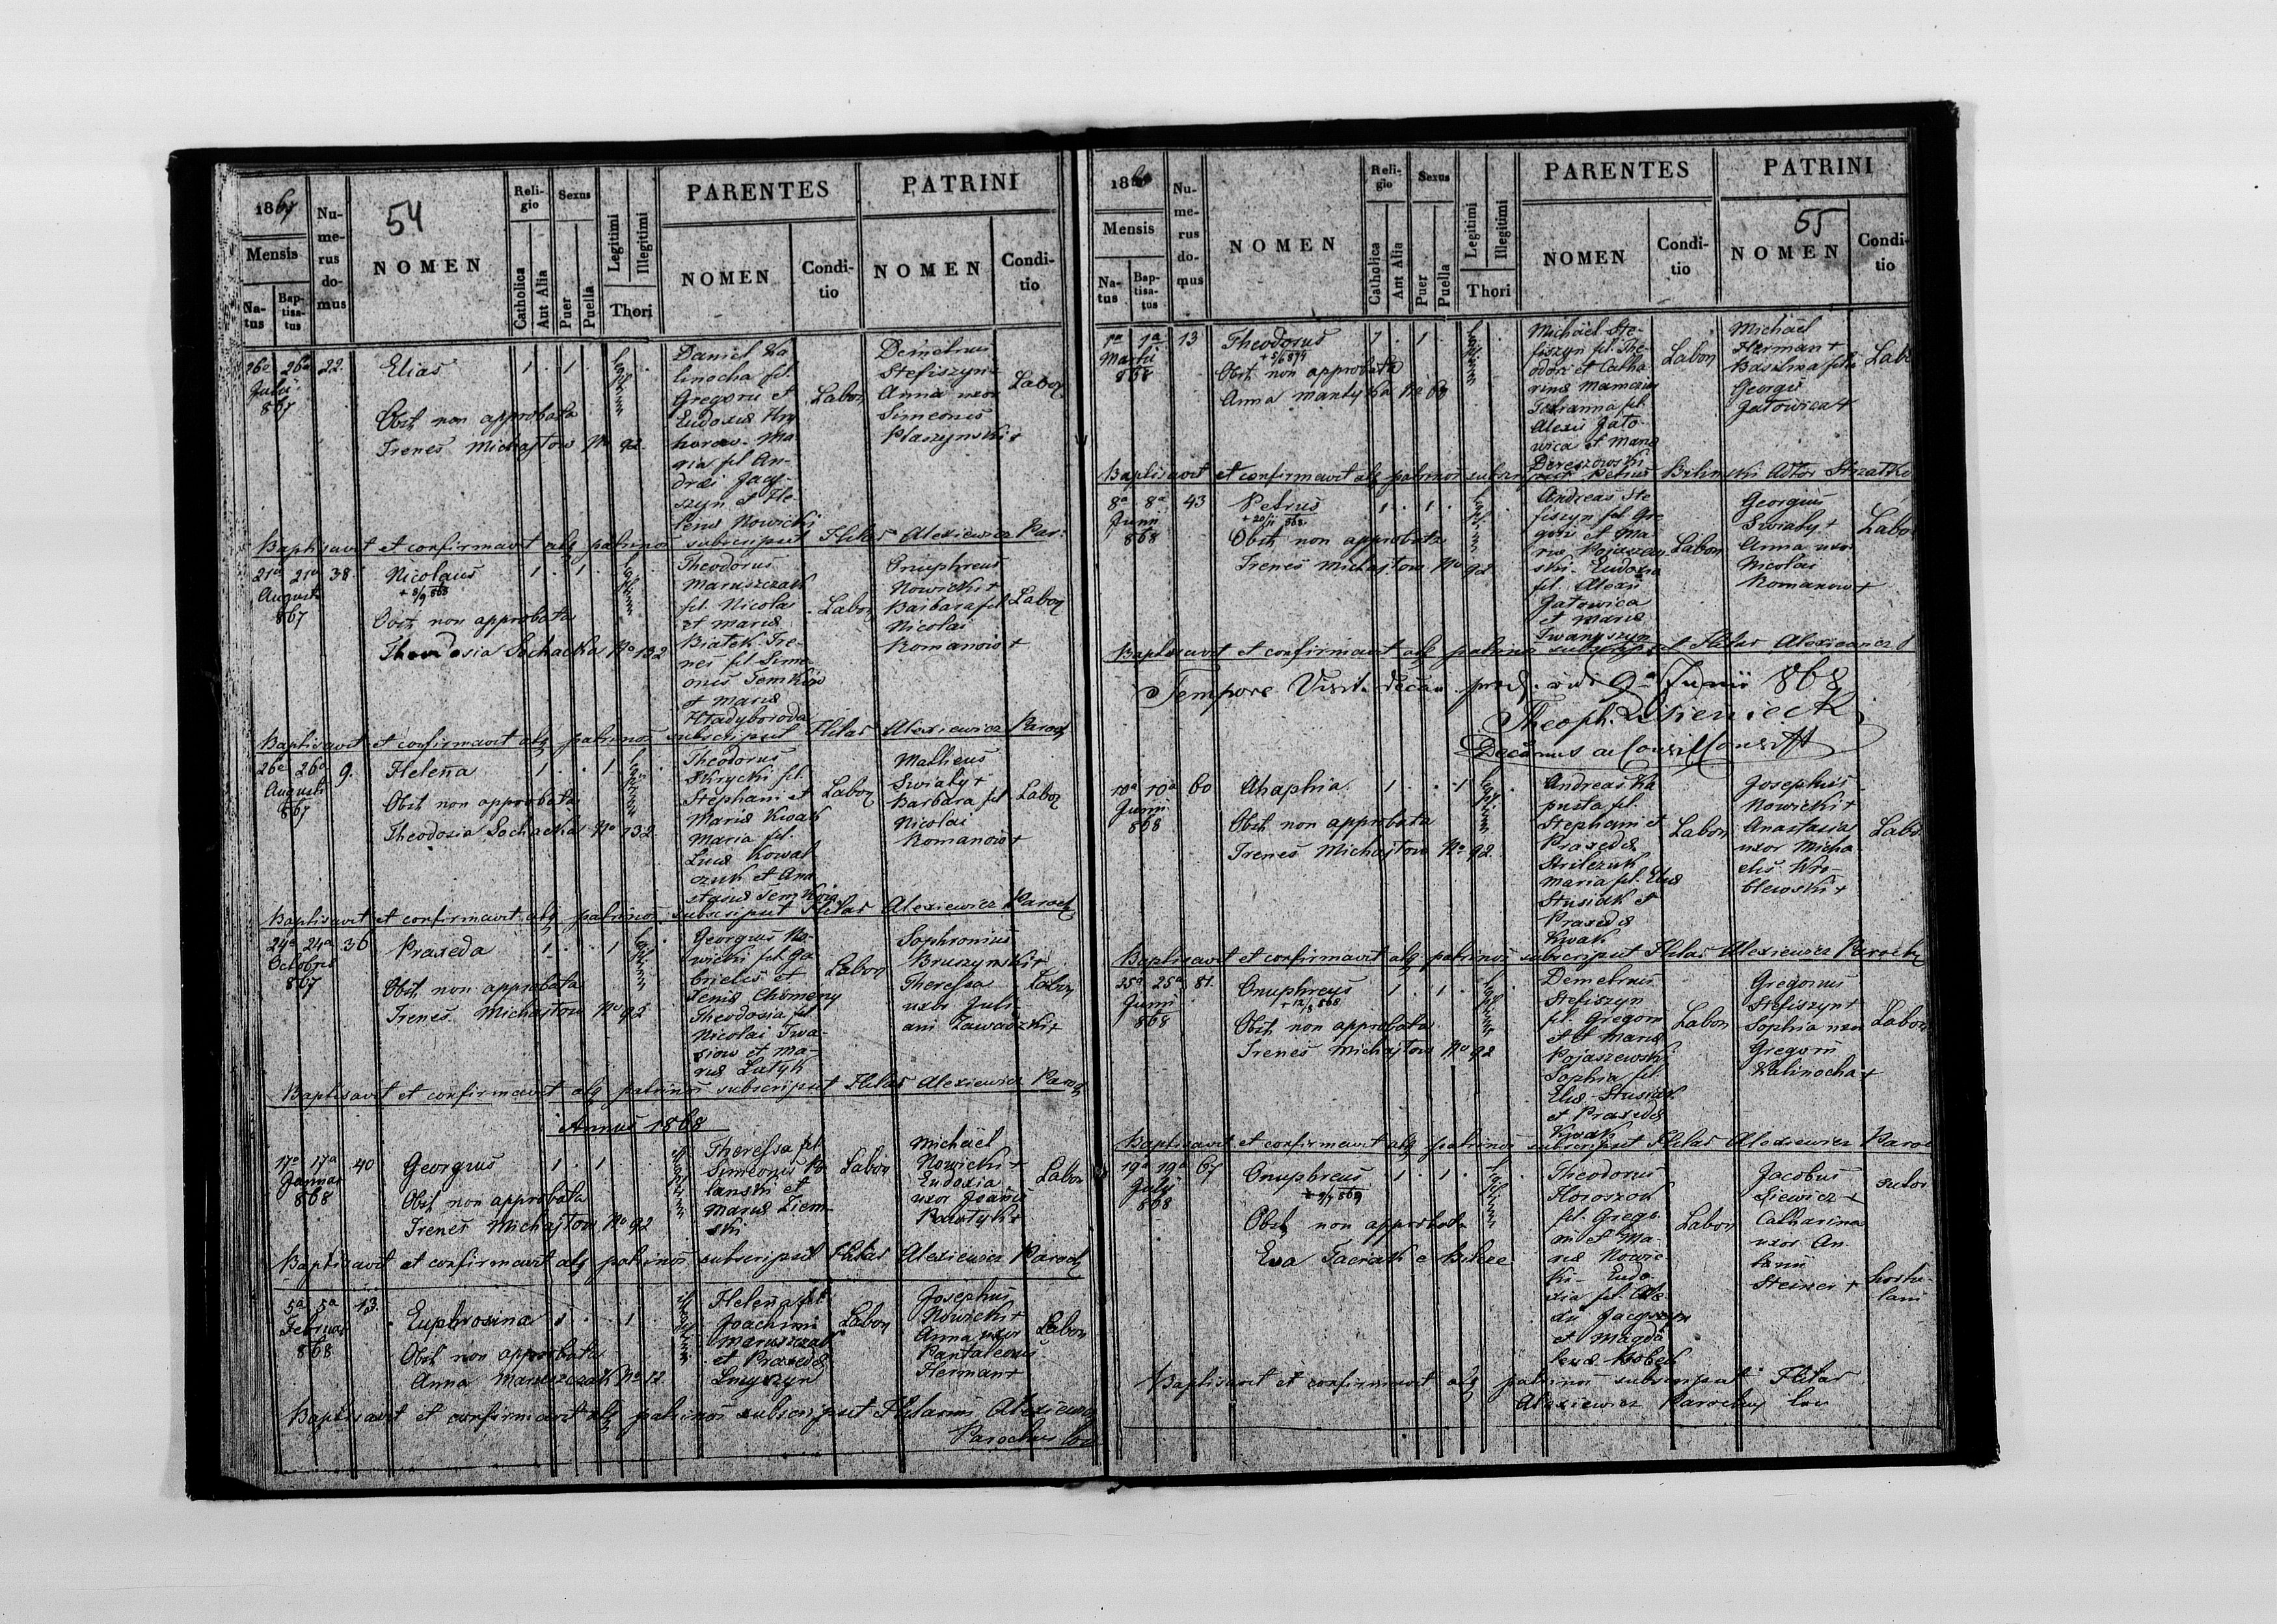 1867
54
Mensis
Na-
tus
Bap-
tisa-
tus
Nu-
me-
rus
do-
mus
NOMEN
Reli-
gio
Catholica
Aut Alia
Sexus
Puer
Puella
Legitimi
Illegitimi
Thori
PARENTES
NOMEN
Condi-
tio
PATRINI
NOMEN
Condi-
tio
26a 26a 22. Elias 1 . 1 .
Julii
867
Obst. non approbata
Irenes Michajłow No 92.
Daniel Ka
linocha fil.
Gregorii et
Eudoxiæ
Ma
ria fil An-
dreæ Jacy-
szyn et He-
lenæ Nowicki
Labor
Demetrius
Stefiszyn
Anna uxor
Simeonis
Płaszynski +
Labor
Baptisavit et confirmavit atq patrinos subscripsit Hilar Alexiewicz Par.
21a 21a 38. Nicolaus 1 . 1 .
+ 8/9 868
Augusti
867
Obst. non approbata
Theodosia Sochacka No 132
Theodorus
Maruszczak
fil. Nicolai
et Mariæ
Białek Ire-
nes fil. Sime
onis Semkow
et Mariæ
Hładyboroda
Labor
Onuphreus
Nowicki +
Barbara fil
Nicolai
Romanow +
Labor
Baptisavit et confirmavit atq patrinos subscripsit Hilar Alexiewicz Paroch
26a 26a 9. Helena 1 . . 1
Augusti
867
Obst. non approbata
Theodosia Sochacka No 132.
Theodorus
Skrycki fil.
Stephani et
Mariæ Kwak
Maria fil.
Lucæ Kowal
czuk et Ana
stasiæ Semkow
Labor
Matheus
Swiaty +
Barbara fil
Nicolai
Romanow +
Labor
Baptisavit et confirmavit atq patrinos subscripsit Hilar Alexiewicz Paroch
24a 24a 36 Praxeda 1 . . 1
Octobris
867
Obst. non approbata
Irenes Michajłow No 92
Georgius No-
wicki fil. Ga
brielis et
Xeniæ
Theodosia fil
Nicolai Iwa-
siow et Ma-
riæ Lutyk
Labor
Sophronius
Bruszynski +
Theressa
uxor Juli-
ani Zawadzki +
Labor
Baptisavit et confirmavit atq patrinos subscripsit Hilar Alexiewicz Paroch
Annus 1868
17a 17a 40 Georgius 1 . 1
Januar
868
Obst. non approbata
Irenes Michajłow No 92
Theressa fil.
Simeonis Po
lanski et
Mariæ Ziem-
ski
Labor
Michaël
Nowicki +
Eudoxia
uxor Joannis
Labor
Baptisavit et confirmavit atq patrinos subscripsit Hilar Alexiewicz Paroch
5a 5a 13. Euphrosina 1 . . 1
Februar
868
Obst. non approbata
Anna Maruszczak No 12.
Helena fil.
Joachimi
Maruszczak
et Praxedæ
Labor
Josephus
Nowicki +
Anna uxor
Pantaleonis
Herman +
Labor
Baptisavit et confirmavit atq patrinos subscripsit Hilarius Alexiewicz
Parochus loci
186
55
Mensis
Na-
tus
Bap-
tisa-
tus
Nu-
me-
rus
do-
mus
NOMEN
Reli-
gio
Catholica
Aut Alia
Sexus
Puer
Puella
Legitimi
Illegitimi
Thori
PARENTES
NOMEN
Condi-
tio
PATRINI
NOMEN
Condi-
tio
1a 1a 13 Theodorus 1 . 1 .
Martii
868
Obst. non approbata
Anna Mantyka No 60
Michaël Ste-
fiszyn fil. The-
odori et Catha
rinæ
Joanna fil.
Alexii Jato-
wica et Mariæ
Labor
Michaël
Herman +
Basilissa filia
Georgii
Jatowica +
Labor
Baptisavit et confirmavit atq patrinos subscripsit Petrus
8a 8a 43 Petrus 1 . 1 .
Junii
868
Obst. non approbata
Irenes Michajłow No 92
Andreas Ste
fiszyn fil. Gre
gorii et Ma
riæ Pojaszew
ski. Eudoxia
fil. Alexii
Jatowica
et Mariæ
Iwanyszyn
Labor
Georgius
Swiaty +
Anna uxor
Nicolai
Romanow +
Labor
Baptisavit et confirmavit atq patrinos subscripsit Hilar Alexiewicz
Tempore Visit. decan. 9a Junii 868
Theoph.
Decanus
10a 10a 60 Ahaphia 1 . . 1
Junii
868
Obst. non approbata
Irenes Michajłow No 92.
Andreas Ka
pusta fil.
Stephani et
Praxedæ
Strilczuk
Maria fil. Eliæ
Stusiak et
Praxedæ
Kwak
Labor
Josephus
Nowicki +
Anastasia
uxor Micha
elis Wro-
blewski +
Labor
Baptisavit et confirmavit atq patrinos subscripsit Hilar Alexiewicz Paroch
25a 25a 81. Onuphreus 1 . 1 .
+ 12/8 868
Junii
868
Obst. non approbata
Irenes Michajłow No 92
Demetrius
Stefiszyn
fil. Gregorii
et Mariæ
Pojaszewski
Sophia fil.
Eliæ Stusiak
et Praxedæ
Kwak
Labor
Gregorius
Stefiszyn +
Sophia uxor
Gregorii
Kalinocha +
Labor
Baptisavit et confirmavit atq patrinos subscripsit Hilar Alexiewicz Paroc
19a 19a 67 Onuphreus 1 . 1 .
July
868
Obst. non approbata
Theodorus
Horoszow
fil. Grego-
rii et Ma-
riæ Nowic-
ki - Eudo-
xia fil. Ale-
xii Jacyszyn
et Magda
lenæ
Labor
Jacobus
Catharina
uxor An-
tonii
sutor
hortu-
lani
Baptisavit et confirmavit atq patrinos subscripsit Hilar
Alexiewicz Parochus loci